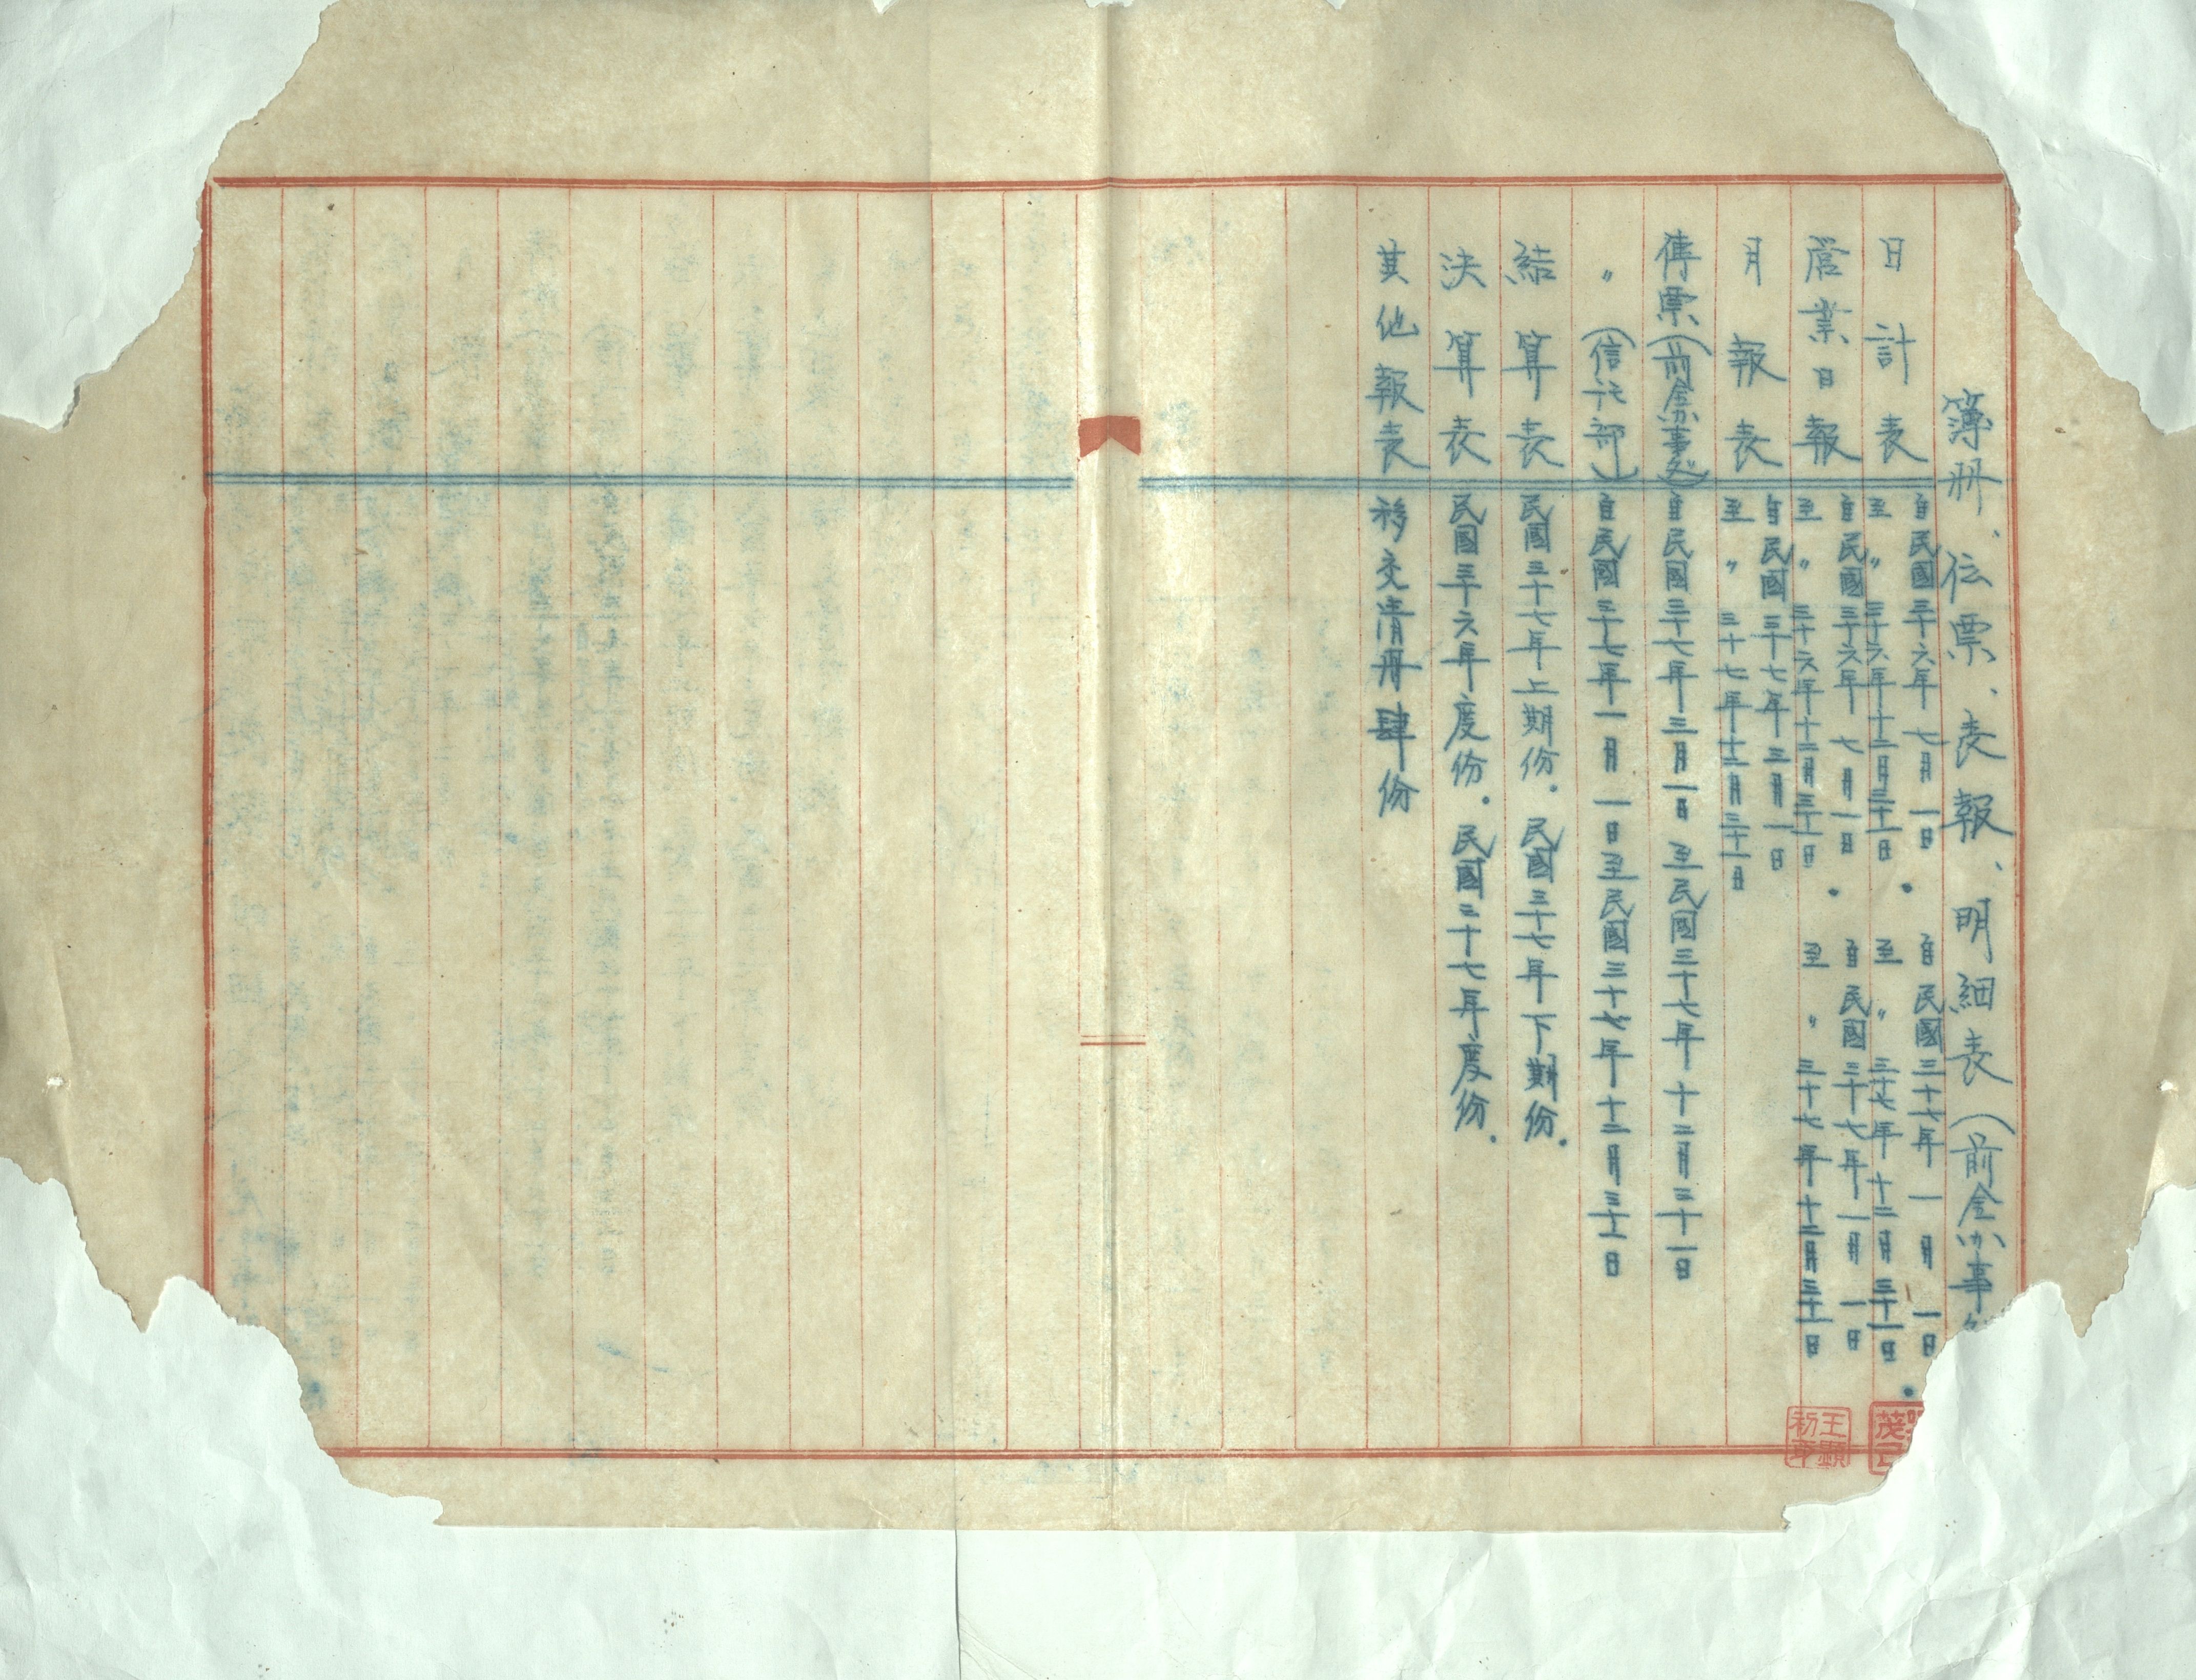 簿冊、伝票、表報、明細表(前金办事
日計表 自民國三十六年七月一日 至〃三十六年十二月三十一日. 自民國三十七年一月一日 至〃三十七年十二月三十一日.
營業日報 自民國三十六年七月一日 至〃三十六年十二月三十一日. 自民國三十七年一月一日 至〃三十七年十二月三十一日
月報表 自民國三十七年三月一日 至〃三十七年十二月三十一日
傳票(前金办事処) 自民國三十七年三月一日至民國三十七年十二月三十一日
〃(信託部) 自民國三十七年一月一日至民國三十七年十二月三十一日
結算表 民國三十七年上期份.民國三十七年下期份.
決算表 民國三十六年度份.民國三十七年度份.
其他報表 移交清冊肆份
王顯初章
茂